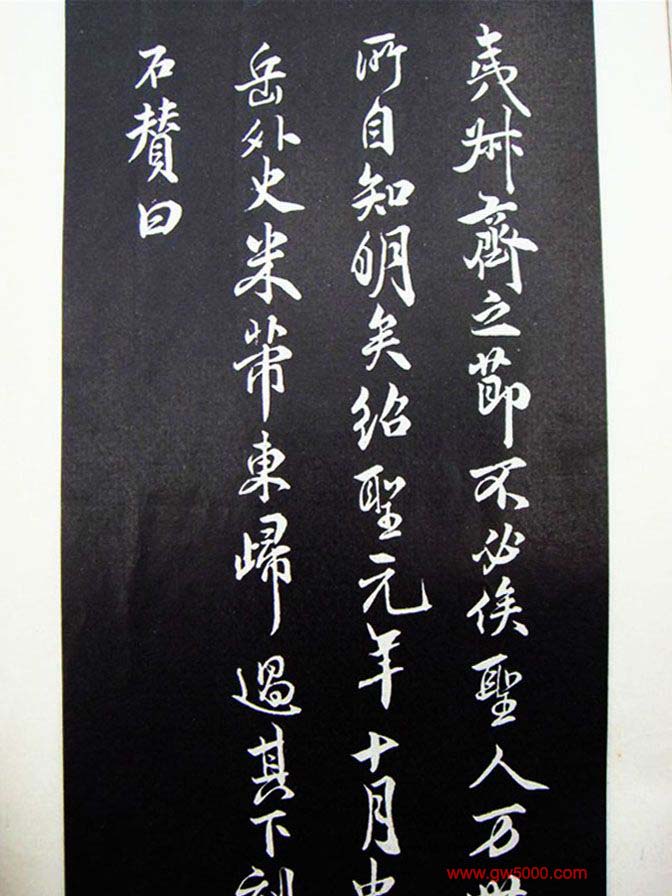 夷叔齊之節不必俟聖人万世
所自知明矣紹聖元年十月中
岳外史米芾東歸過其下刻
石贊曰
www.qw5000.com